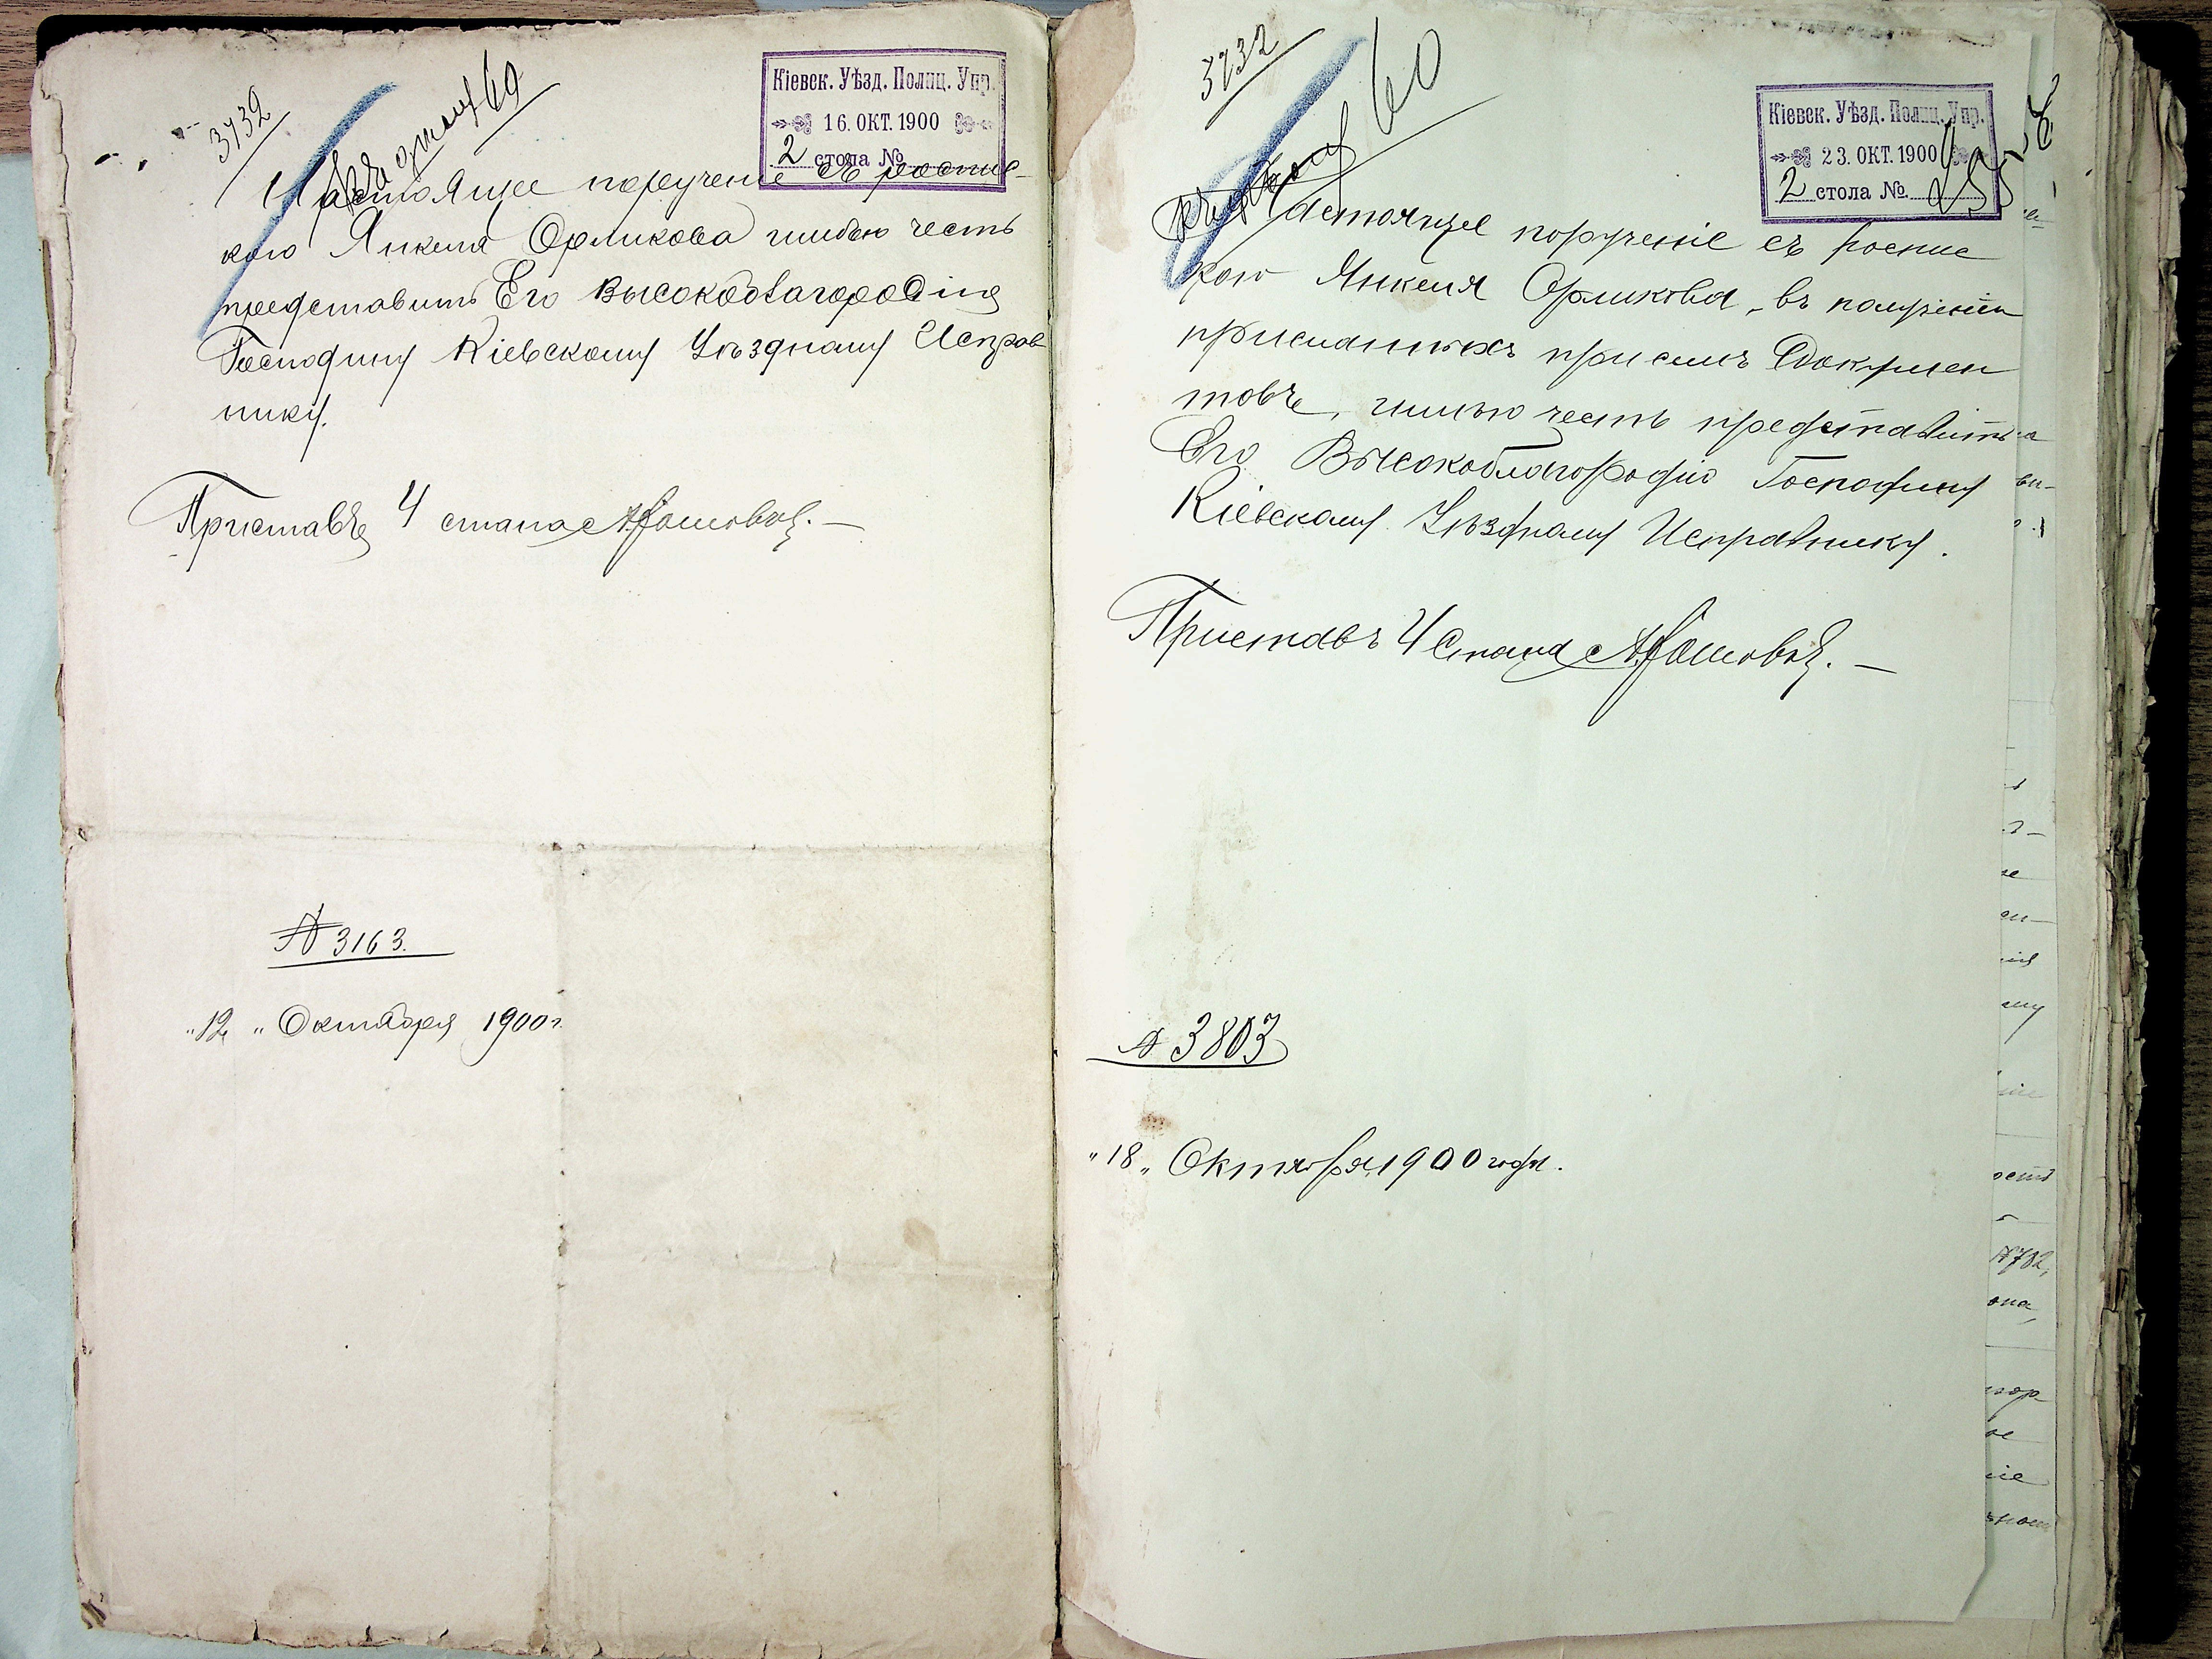 3732
60
Кіевск. Уѣзд. Полиц. Упр.
16. ОКТ. 1900
2 стола №
Настоящее порученіе съ роспис-
кою Янкеля Орликова имѣю честь
представить Его Высокоблагородію
Господину Кіевскому Уѣздному Исправ
нику.
Приставъ 4 стана
№ 3163.
"12" Октября 1900 г.
3732
60
Кіевск. Уѣзд. Полиц. Упр.
23. ОКТ. 1900
2 стола №
Настоящее порученіе съ роспис
кою Янкеля Орликова, въ полученіи
присланныхъ при семъ докумен
товъ, имѣю честь представить
Его Высокоблагородію Господину
Кіевскому Уѣздному Исправнику.
Приставъ 4 Стана
№ 3803
"18" Октября 1900 года.